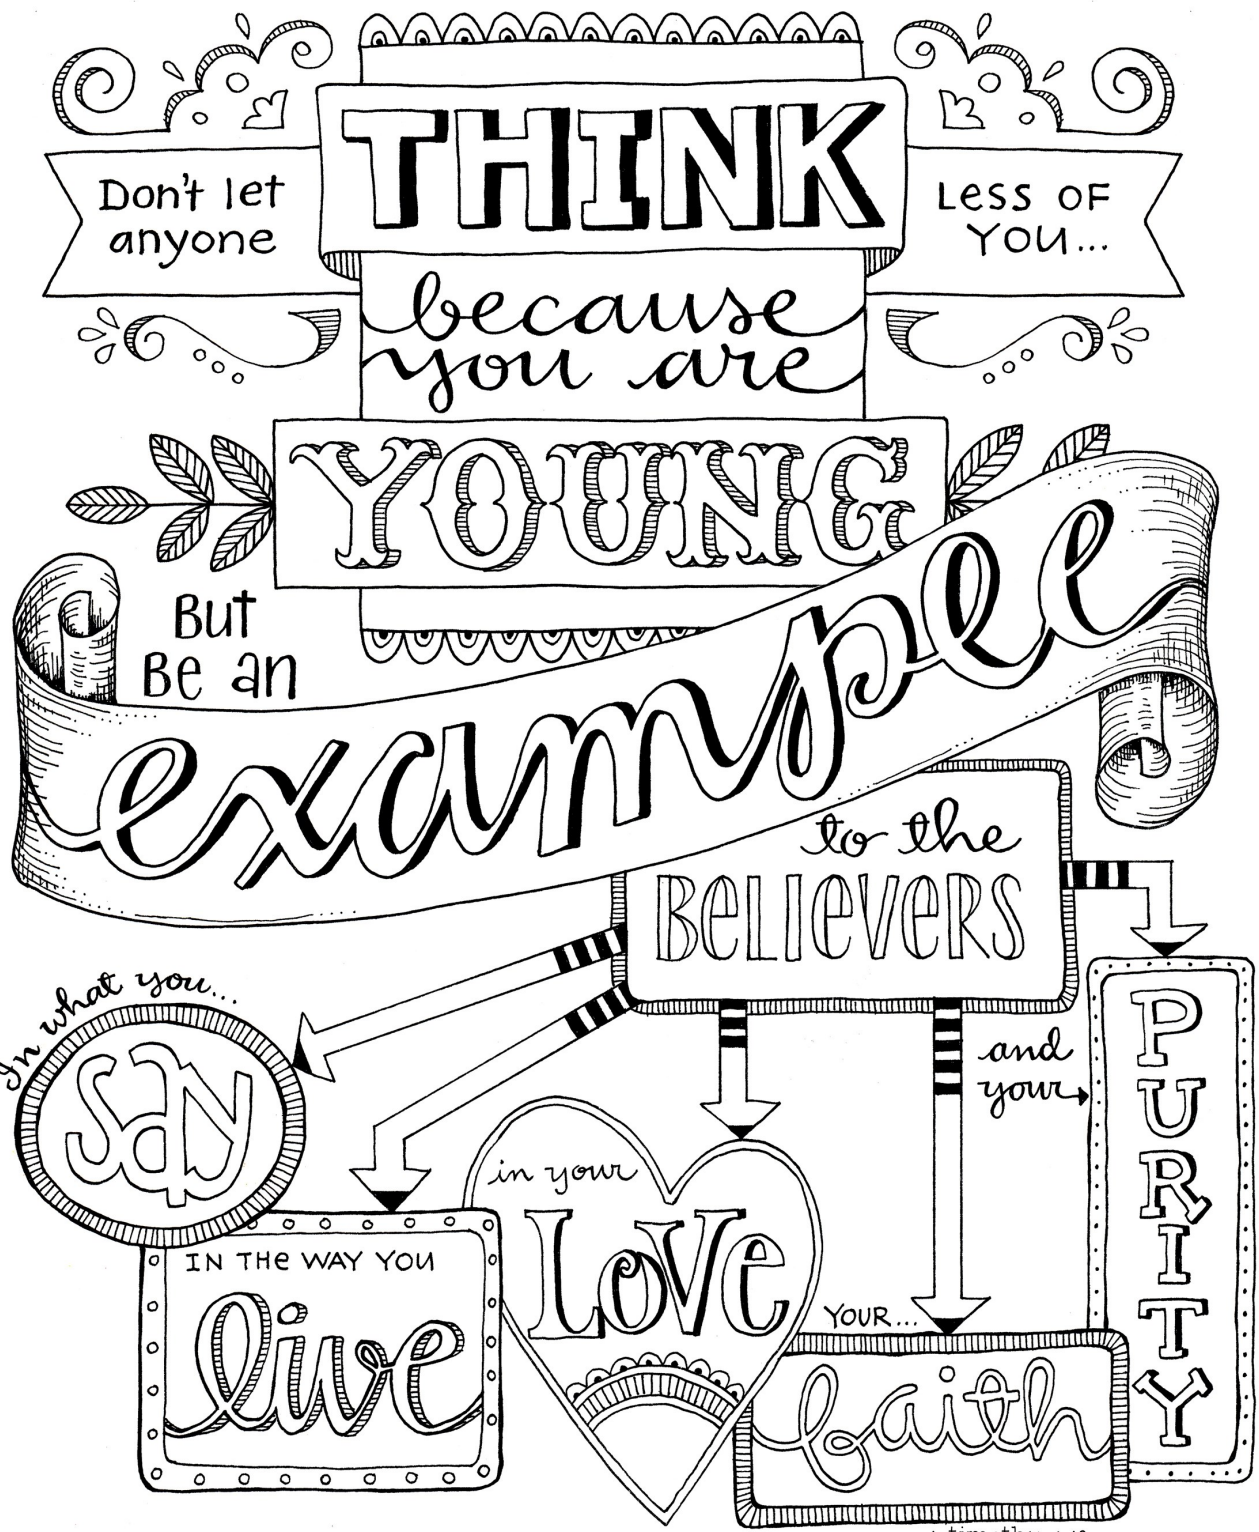 Don't let
anyone
THINK
Less of
you...
because
you are
YOUNG
But
Be an
example
to the
BeLIeVeRS
In what you...
say
IN THe WAY YOU
live
in your
LoVe
YOUR...
faith
and
your
PURITY